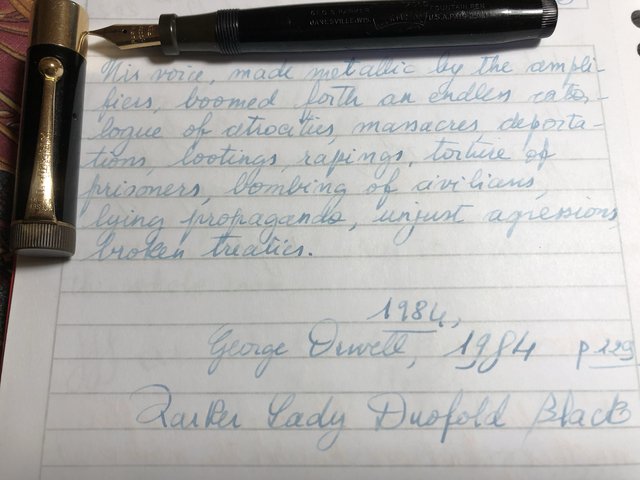 GEO. S. PARKER FOUNTAIN PEN
JANESVILLE, WIS. U.S.A. PAT.
His voice, made metallic by the ampli-
fiers, boomed forth an endless cata-
logue of atrocities, massacres, deporta-
tions, lootings, rapings, torture of
prisoners, bombing of civilians,
lying propaganda, unjust agressions,
broken treaties.
1984,
George Orwell, 1984 p 129
Parker Lady Duofold Black